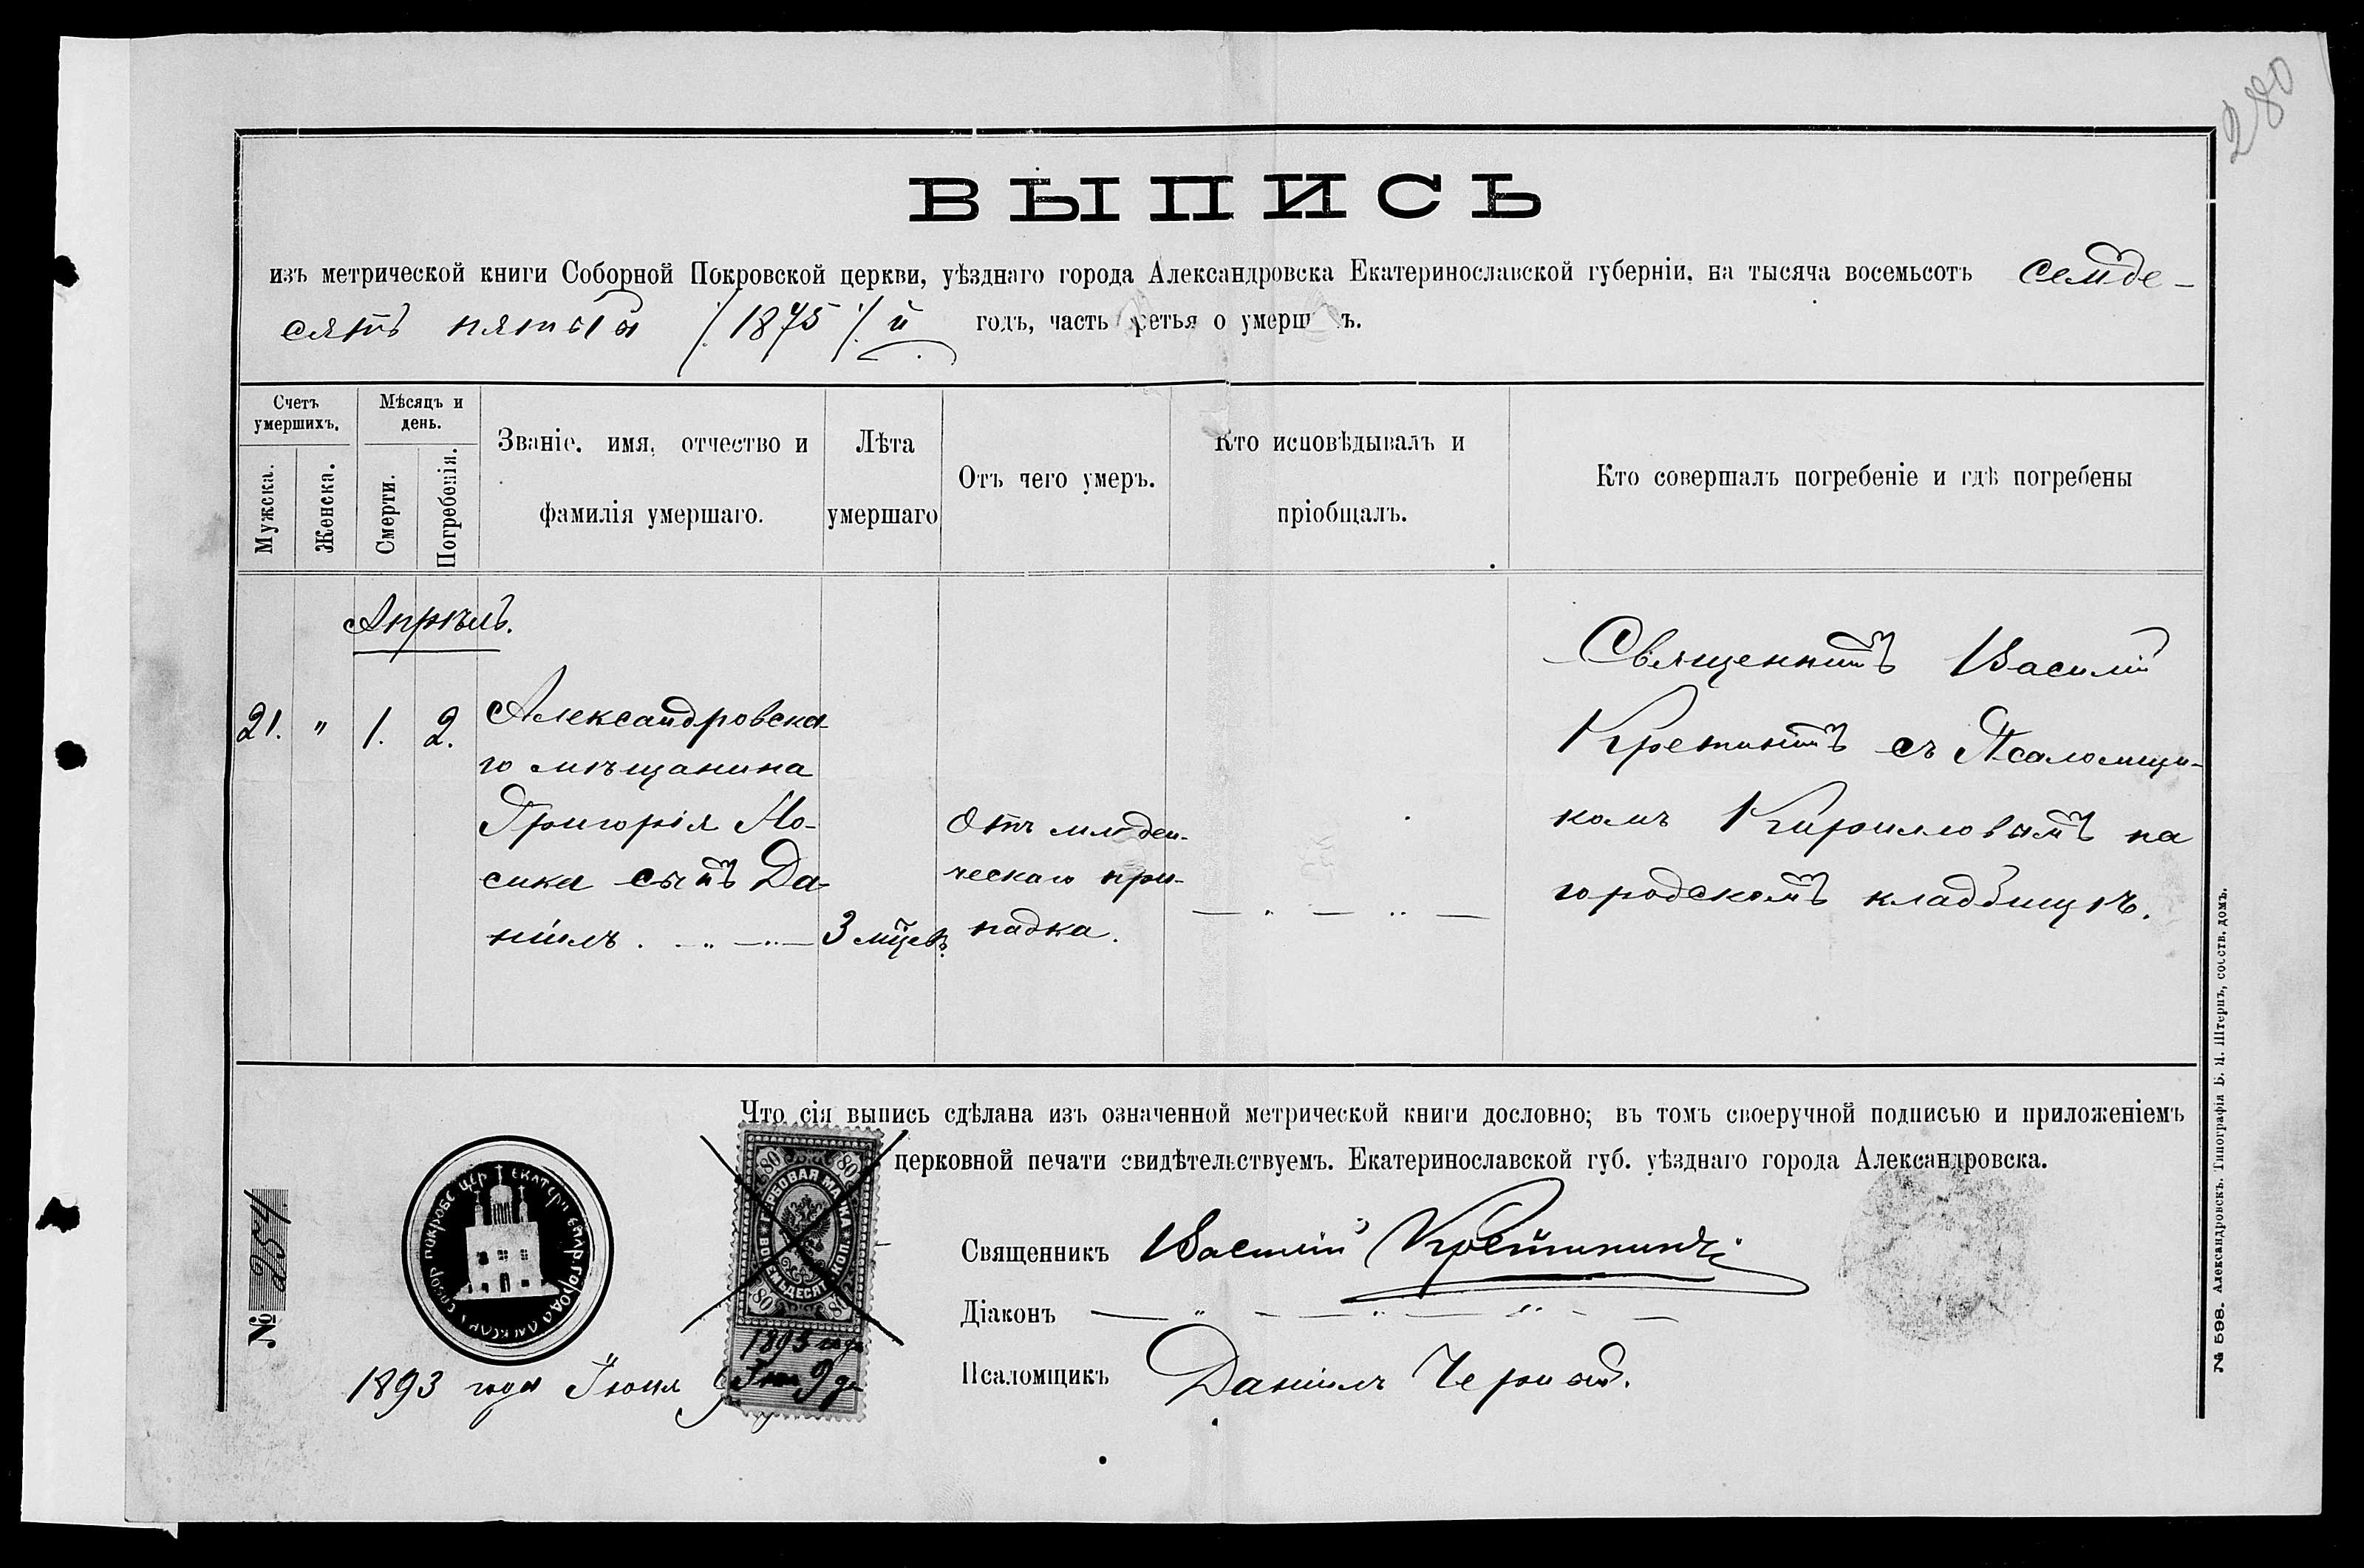 280
ВЫПИСЬ
изъ метрической книги Соборной Покровской церкви, уѣзднаго города Александровска Екатеринославской губерніи, на тысяча восемьсотъ семьде-
сятъ пятый /:1875:/ й годъ, часть третья о умершихъ.
Счетъ умершихъ.
Мужска.
Женска.
Мѣсяцъ и день.
Смерти.
Погребенія.
Званіе, имя, отчество и
фамилія умершаго.
Лѣта
умершаго
Отъ чего умеръ.
Кто исповѣдывалъ и
пріобщалъ.
Кто совершалъ погребеніе и гдѣ погребены
Апрѣль.
21. " 1. 2.
Александровска-
го мѣщанина
Григорія Но-
сика сынъ Да-
ніилъ.
3 мцев.
Отъ младен-
ческаго при-
падка.
Священникъ Василій
Кретининъ съ Псаломщи-
комъ Кирилловымъ на
городскомъ кладбищѣ.
Что сія выпись сдѣлана изъ означенной метрической книги дословно; въ томъ своеручной подписью и приложеніемъ
церковной печати свидѣтельствуемъ. Екатеринославской губ. уѣзднаго города Александровска.
Священникъ Василій Кретининъ
Діаконъ
Псаломщикъ Даніилъ Черный.
№ 254
1893 года Іюня 9
80 80
ГЕРБОВАЯ МАРКА ВОСЕМЬДЕСЯТ КОП.
80 80
1893 года
Іюня 9 дня
№ 598. Александровскъ. Типографія Б. И. Штернъ, собств. домъ.